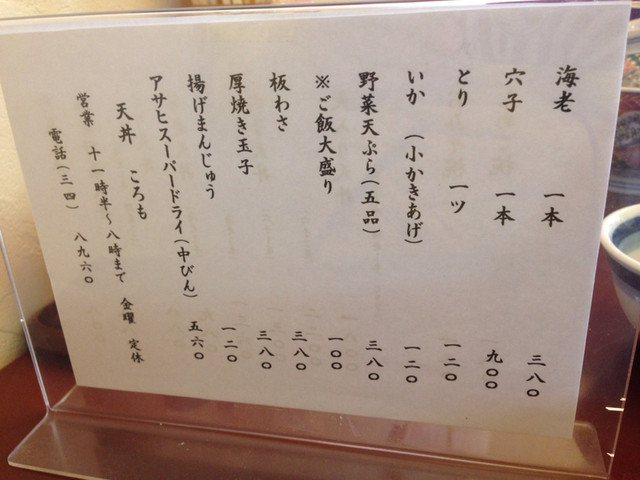 海老 一本 三八〇
穴子 一本 九〇〇
とり 一ツ 一二〇
いか (小かきあげ) 一二〇
野菜天ぷら(五品) 三八〇
※ご飯大盛り 一〇〇
板わさ 三八〇
厚焼き玉子 三八〇
揚げまんじゅう 一二〇
アサヒスーパードライ(中びん) 五六〇
天丼 ころも
営業 十一時半〜八時まで 金曜 定休
電話(三四) 八九六〇